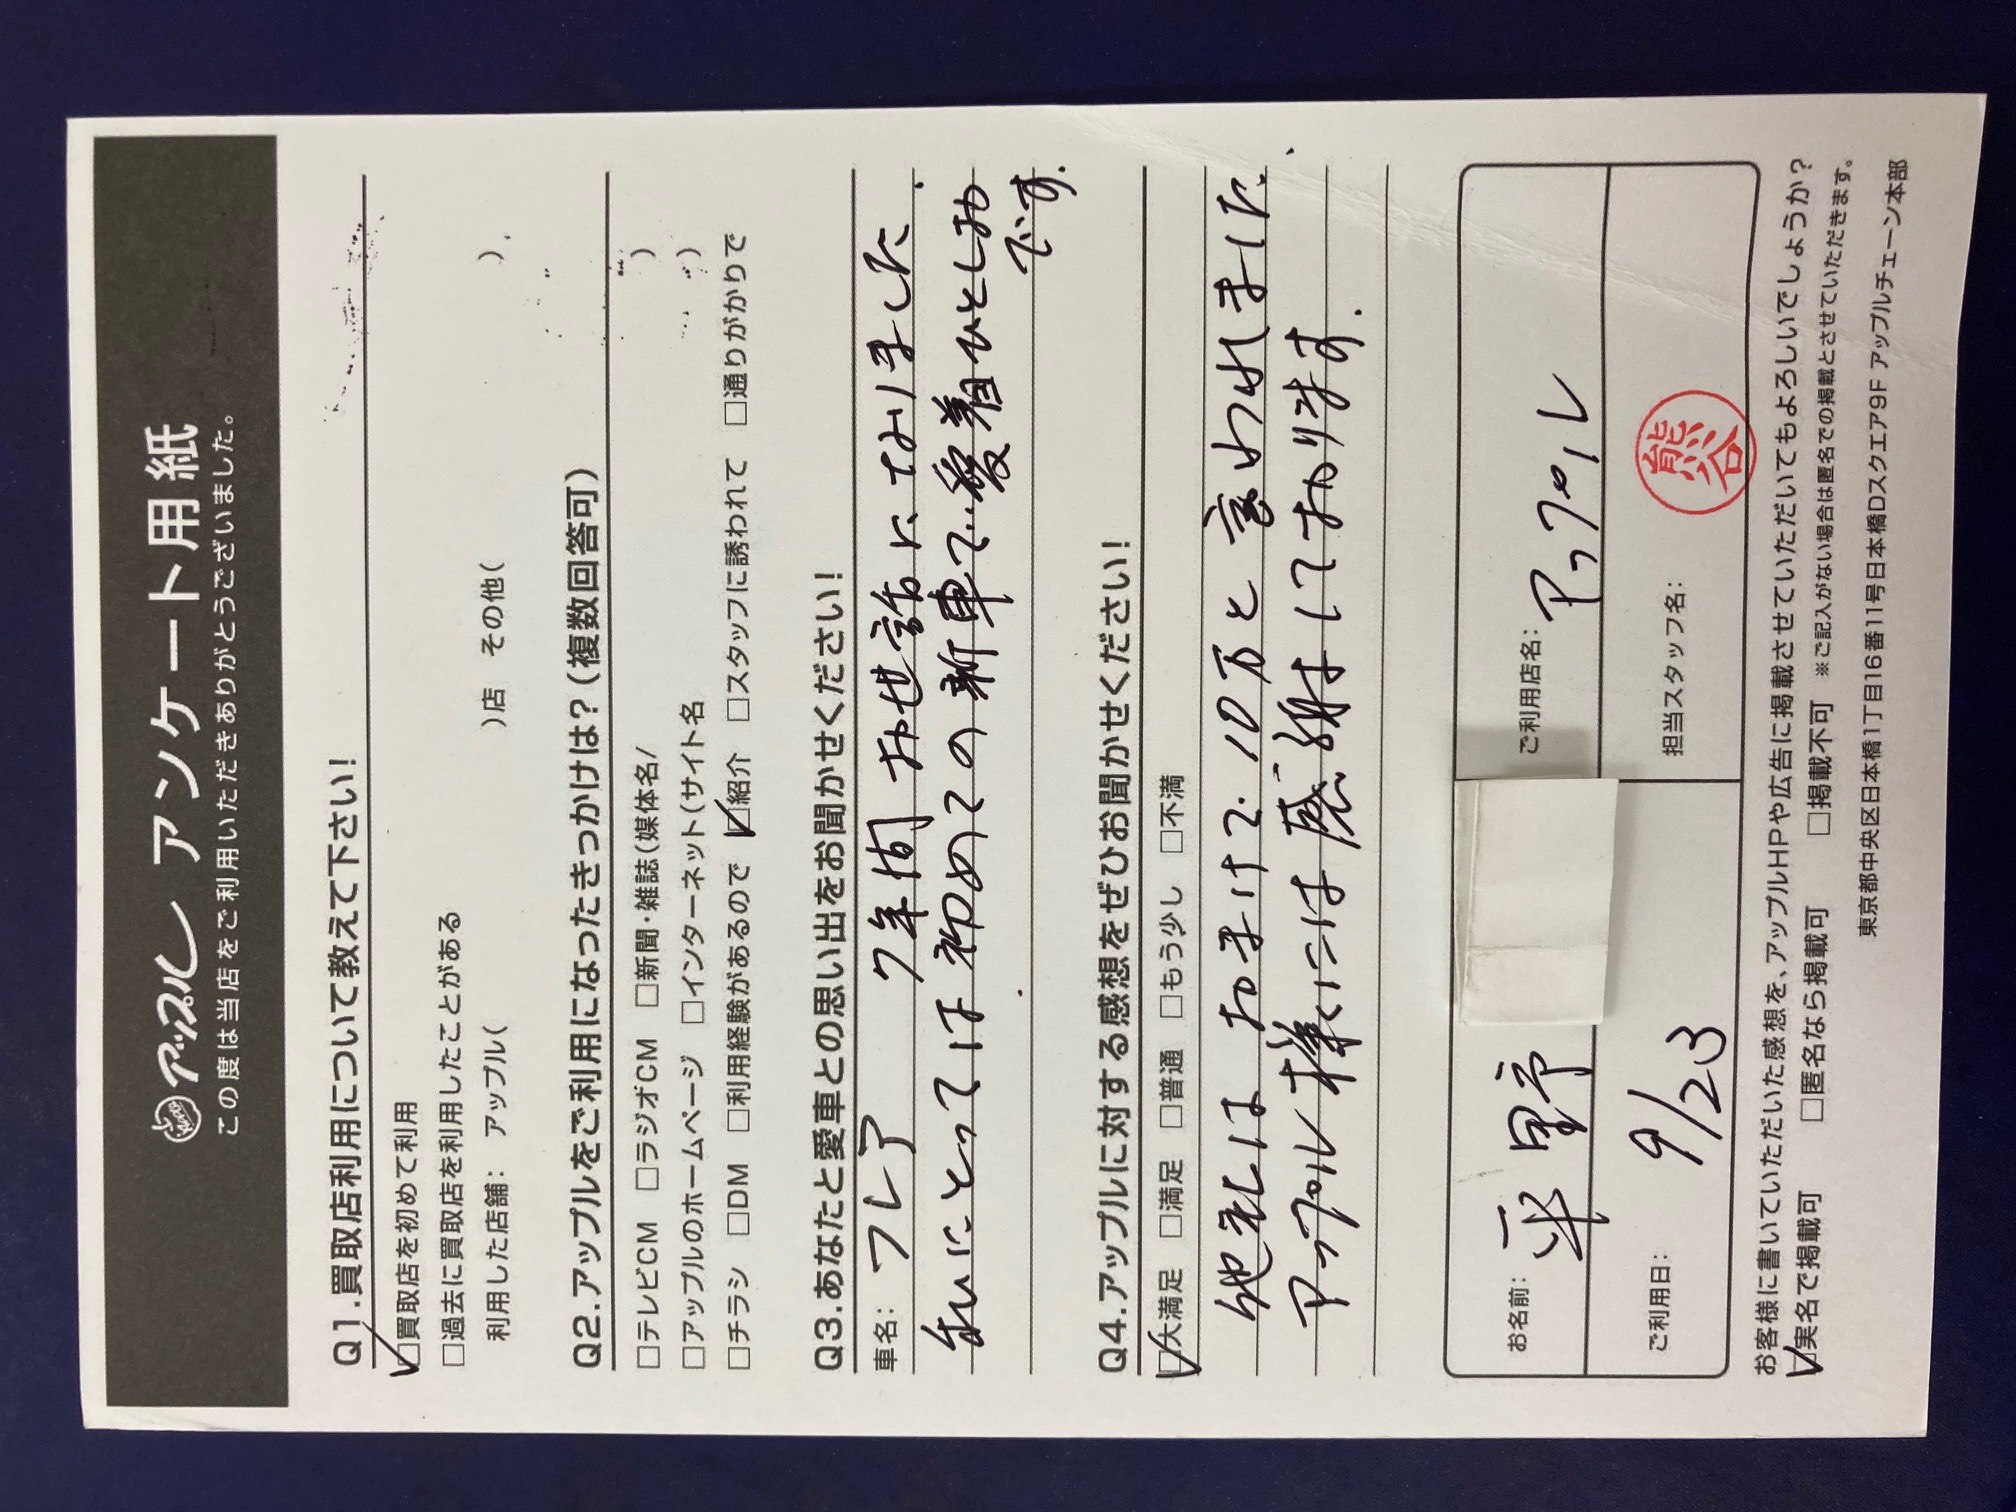 アップル アンケート用紙
この度は当店をご利用いただきありがとうございました。
Q1.買取店利用について教えて下さい!
□買取店を初めて利用
□過去に買取店を利用したことがある
利用した店舗: アップル( )店 その他( )
Q2.アップルをご利用になったきっかけは?(複数回答可)
□テレビCM □ラジオCM □新聞・雑誌(媒体名/ )
□アップルのホームページ □インターネット(サイト名 )
□チラシ □DM □利用経験があるので ☑紹介 □スタッフに誘われて □通りがかりで
Q3.あなたと愛車との思い出をお聞かせください!
車名: フレア 7年間お世話になりました.
私にとっては初めての新車で愛着ひとしお
です.
Q4.アップルに対する感想をぜひお聞かせください!
☑大満足 □満足 □普通 □もう少し □不満
他社はおまけで10万と言われました.
アップル様には感謝しております.
お名前: 平野
ご利用店名: アップル
ご利用日: 9/23
担当スタッフ名: 熊谷
お客様に書いていただいた感想を、アップルHPや広告に掲載させていただいてもよろしいでしょうか?
☑実名で掲載可 □匿名なら掲載可 □掲載不可 ※ご記入がない場合は匿名での掲載とさせていただきます。
東京都中央区日本橋1丁目16番11号日本橋Dスクエア9F アップルチェーン本部